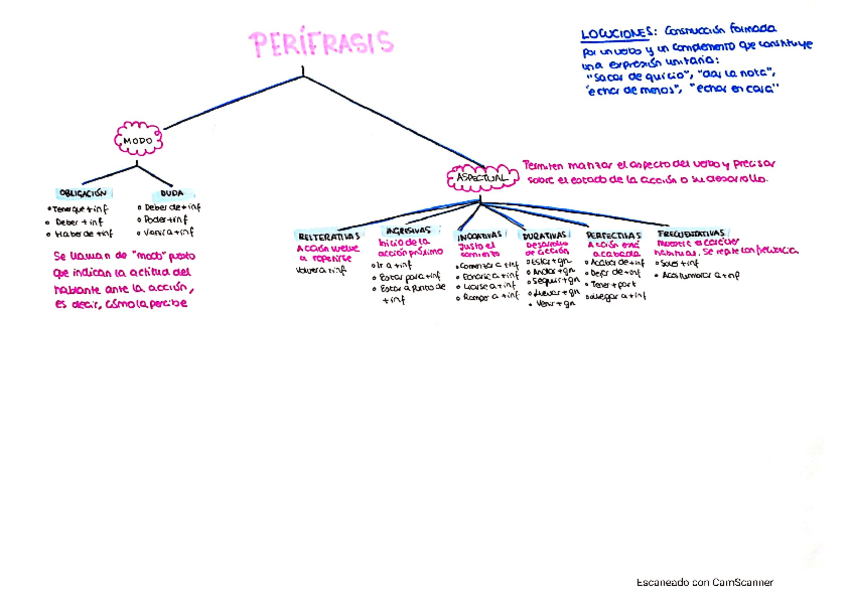 PERÍFRASIS
LOCUCIONES: Construcción formada
por un verbo y un complemento que constituye
una expresión unitaria:
"Sacar de quicio", "dar la nota",
"echar de menos", "echar en cara"
MODO
OBLIGACIÓN
• Tener que + inf
• Deber + inf
• Haber de + inf
DUDA
• Deber de + inf
• Poder + inf
• Venir a + inf
Se llaman de "modo" puesto
que indican la actitud del
hablante ante la acción,
es decir, cómo la percibe
ASPECTUAL
Permiten matizar el aspecto del verbo y precisar
sobre el estado de la acción o su desarrollo.
REITERATIVAS
Acción vuelve
a repetirse
Volver a + inf
INGRESIVAS
Inicio de la
acción próximo
• Ir a + inf
• Estar para + inf
• Estar a punto de
+ inf
INCOATIVAS
Justo el
momento
• Comenzar a + inf
• Echarse a + inf
• Liarse a + inf
• Romper a + inf
DURATIVAS
Desarrollo
de acción
• Estar + gn
• Andar + gn
• Seguir + gn
• Llevar + gn
• Venir + gn
PERFECTIVAS
Acción está
acabada
• Acabar de + inf
• Dejar de + inf
• Tener + part
• Llegar a + inf
FRECUENTATIVAS
Muestra el carácter
habitual. Se repite con frecuencia
• Soler + inf
• Acostumbrar a + inf
Escaneado con CamScanner